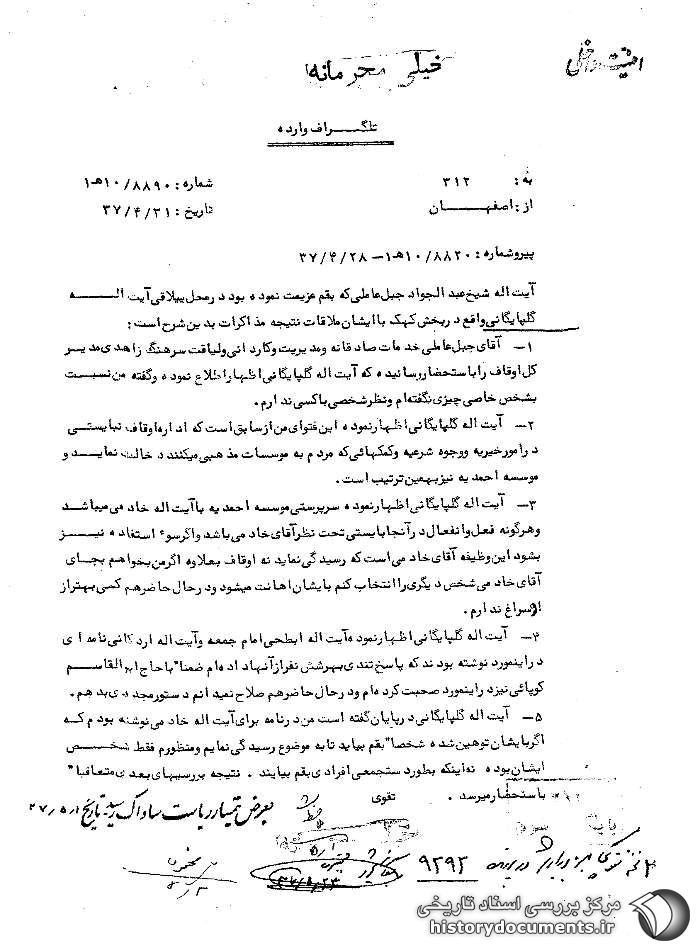 امنیت داخلی
خیلی محرمانه
تلگراف وارده
به : ۳۱۲
شماره : ۱۰/۸۸۹۰هـ۱
از : اصفهان
تاریخ : ۳۷/۴/۳۱
پیروشماره : ۱۰/۸۸۲۰هـ۱ – ۳۷/۴/۲۸
آیت اله شیخ عبد الجواد جبل عاملی که بقم عزیمت نموده بود در محل ییلاقی آیت اله
گلپایگانی واقع در بخش کهک با ایشان ملاقات نتیجه مذاکرات بدین شرح است :
۱– آقای جبل عاملی خدمات صادقانه ومدیریت وکاردانی ولیاقت سرهنگ زاهدی مدیر
کل اوقاف را باستحضار رسانیده که آیت اله گلپایگانی اظهار اطلاع نموده وگفته من نسبت
بشخص خاصی چیزی نگفته ام ونظر شخصی باکسی ندارم .
۲– آیت اله گلپایگانی اظهار نموده این فتوای من از سابق است که اداره اوقاف نبایستی
در امور خیریه ووجوه شرعیه وکمکهائی که مردم به موسسات مذهبی میکنند دخالت نماید و
موسسه احمدیه نیز بهمین ترتیب است .
۳– آیت اله گلپایگانی اظهار نموده سرپرستی موسسه احمدیه با آیت اله خادمی میباشد
وهرگونه فعل وانفعال در آنجا بایستی تحت نظر آقای خادمی باشد واگر سوء استفاده نیز
بشود این وظیفه آقای خادمی است که رسیدگی نماید نه اوقاف بعلاوه اگر من بخواهم بجای
آقای خادمی شخص دیگری را انتخاب کنم بایشان اهانت میشود ودرحال حاضر هم کسی بهتر از
او سراغ ندارم .
۴– آیت اله گلپایگانی اظهار نموده آیت اله ابطحی امام جمعه وآیت اله اردکانی نامه ای
در اینمورد نوشته بودند که پاسخ تندی بهرشش نفر از آنها داده ام ضمنا" باحاج ابوالقاسم
کوپائی نیز در اینمورد صحبت کرده ام ودرحال حاضر هم صلاح نمیدانم دستور مجددی بدهم .
۵– آیت اله گلپایگانی در پایان گفته است من در نامه برای آیت اله خادمی نوشته بودم که
اگر بایشان توهین شده شخصا" بقم بیاید تا به موضوع رسیدگی نمایم ومنظورم فقط شخص
ایشان بوده نه اینکه بطور دستجمعی افرادی بقم بیایند . نتیجه بررسیهای بعدی متعاقبا"
باستحضار میرسد . تقوی
بعرض تیمسار ریاست ساواک رسید. تاریخ
۹۲۹۲
مرکز بررسی اسناد تاریخی
historydocuments.ir